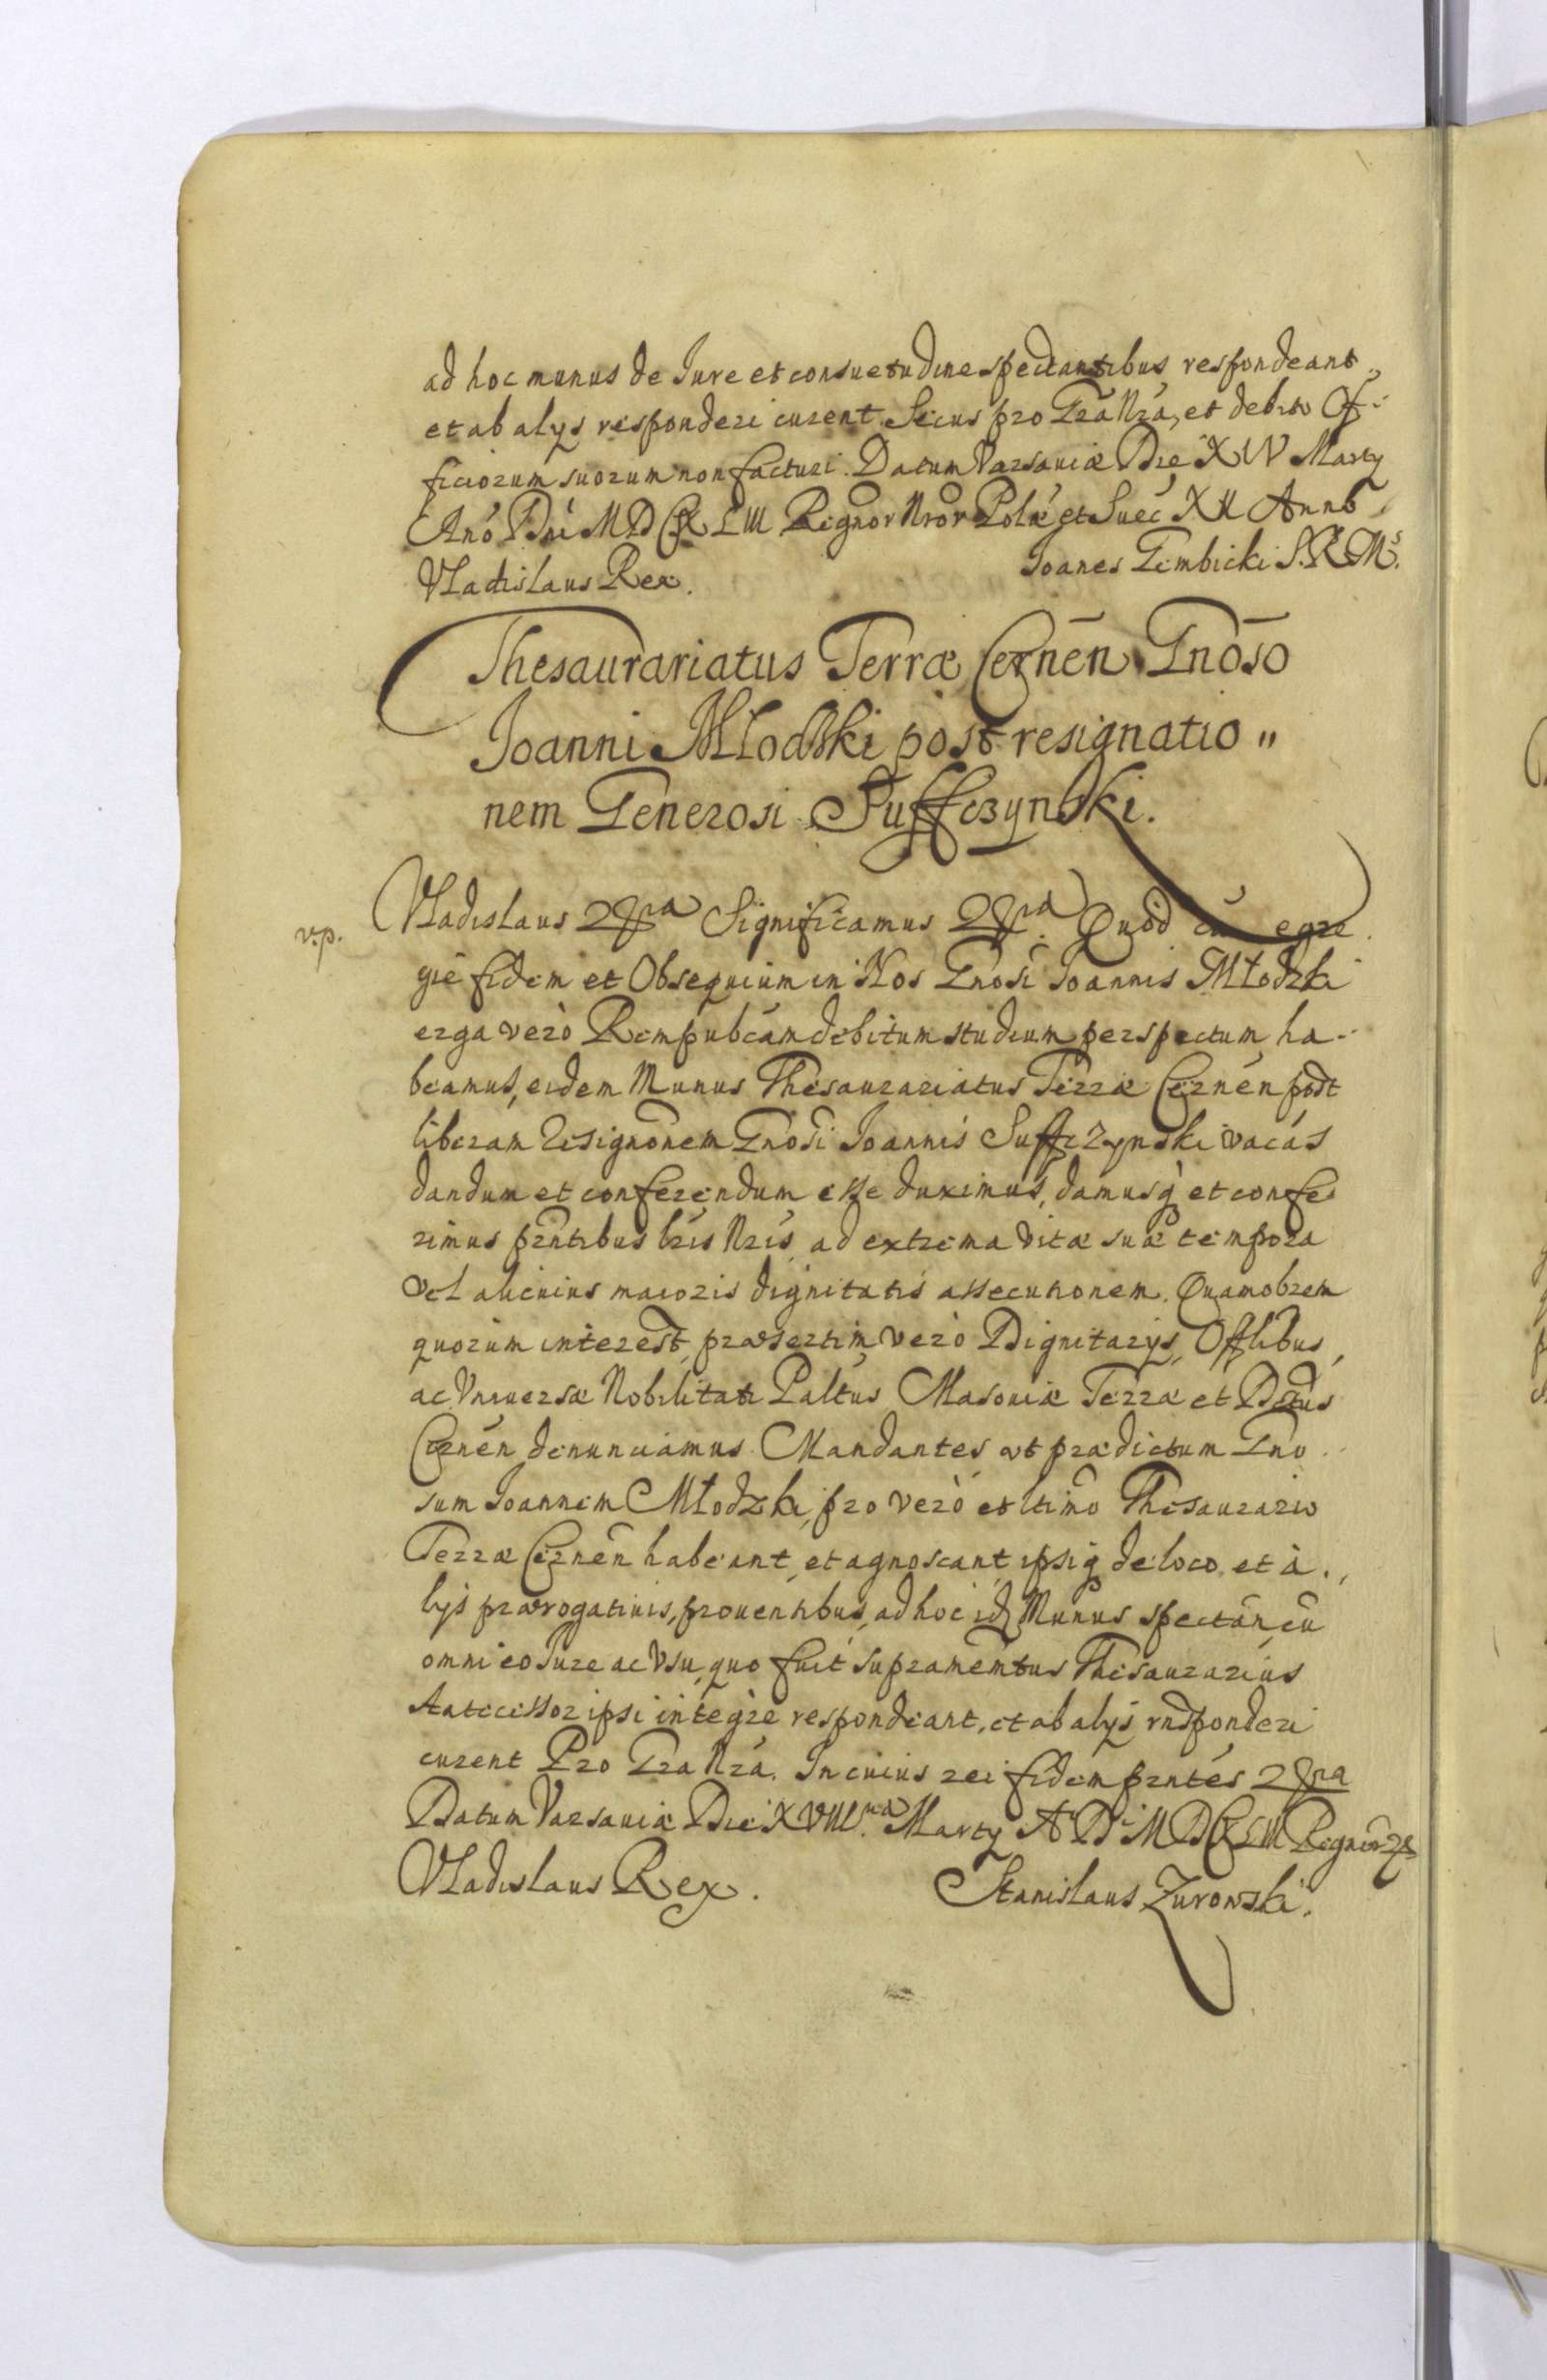 ad hoc munus de Iure et consuetudine spectantibus respondeant,,
et ab alys responderi curent. Secus pro Gra Nra, et debito Of-
ficiorum suorum non facturi. Datum Varsaviæ Die XIV Marty
Ano Dni MDCXLIII Regnor Nror Polæ et Suec XII Anno
Vladislaus Rex. Ioanes Gembicki S.R.Ms.
Thesaurariatus Terræ Cernen Gnoso
Joanni Młodzki post resignatio "
nem Generosi Suffczynski.
v.p.
Vladislaus &ra Significamus &ra. Quod cu egre
gie fidem et Obsequium in Nos Gnosi Joannis Młodzki
erga vero Rempubcam debitum studium perspectum ha-
beamus, eidem Munus Thesaurariatus Terræ Cernen post
liberam Resignonem Gnosi Joannis Suffczynski vacas
dandum et conferendum esse duximus, damusq et confe
rimus pntibus lris Nris ad extrema vitæ suæ tempora
vel alicuius maioris dignitatis assecutionem. Quamobrem
quorum interest, præsertim vero Dignitarys, Offlibus,
ac Universæ Nobilitati Paltus Masoviæ Terræ et Dctus
Cernen denunciamus. Mandantes ut prædictum Gno
sum Joannem Młodzki, pro vero et ltimo Thesaurario
Terræ Cernen habeant, et agnoscant, ipsiq de loco, et a.,
lys prærogativis, proventibus, ad hoc id Munus spectan cu
omni eo Iure ac Usu, quo fuit supramemtus Thesaurarius
Antecessor ipsi integre respondeant, et ab alys rndponderi
curent Pro Gra Nra. In cuius rei fidem pntes &ra
Datum Varsaviæ Die XVIII.va Marty A D MDCXLIII Regnor &
Vladislaus Rex. Stanislaus Zurowski.